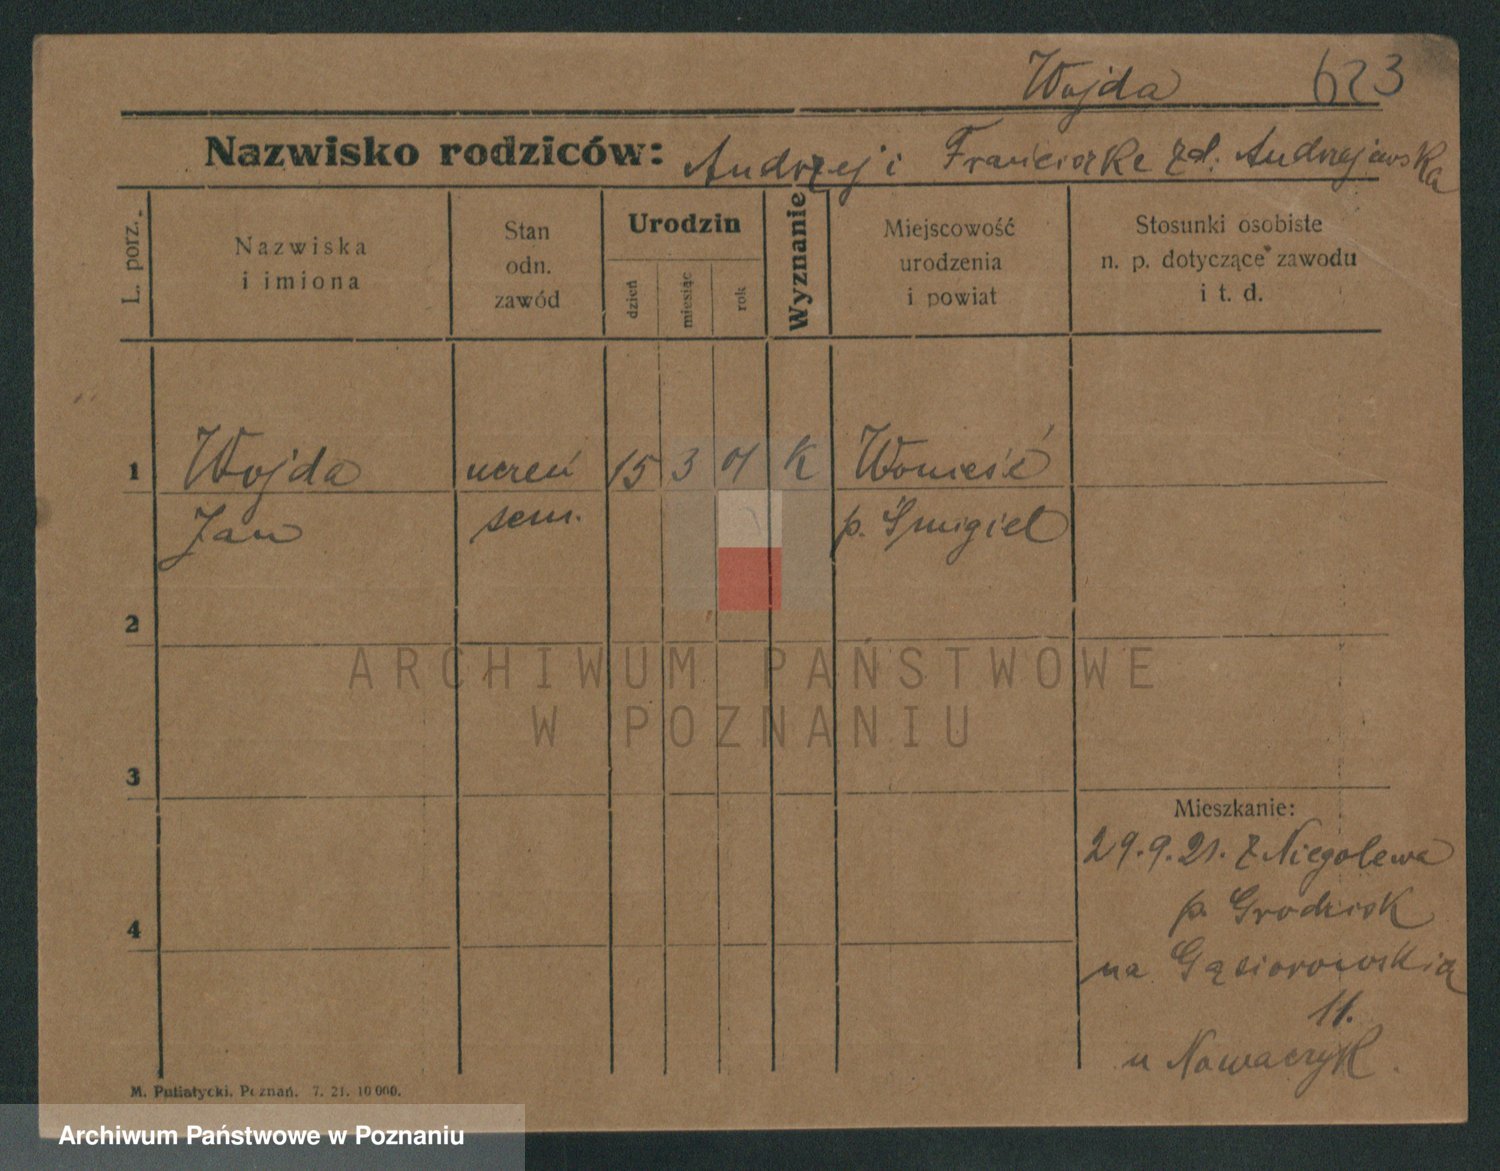 Wojda 623
Nazwisko rodziców: Andrzej i Franciszka zd. Andrzejewska
L. porz.
Nazwiska
i imiona
Stan
odn.
zawód
Urodzin
dzień
miesiąc
rok
Wyznanie
Miejscowość
urodzenia
i powiat
Stosunki osobiste
n. p. dotyczące zawodu
i t. d.
1 Wojda uczeń 15 3 01 K Wonieść
Jan sem. p. Śmigiel
2
3
4
Mieszkanie:
29.9.21. z Niegolewa
p. Grodzisk
na Gąsiorowskią
11.
u Nowaczyk.
M. Putiatycki, Poznań. 7. 21. 10 000.
ARCHIWUM PAŃSTWOWE
W POZNANIU
Archiwum Państwowe w Poznaniu